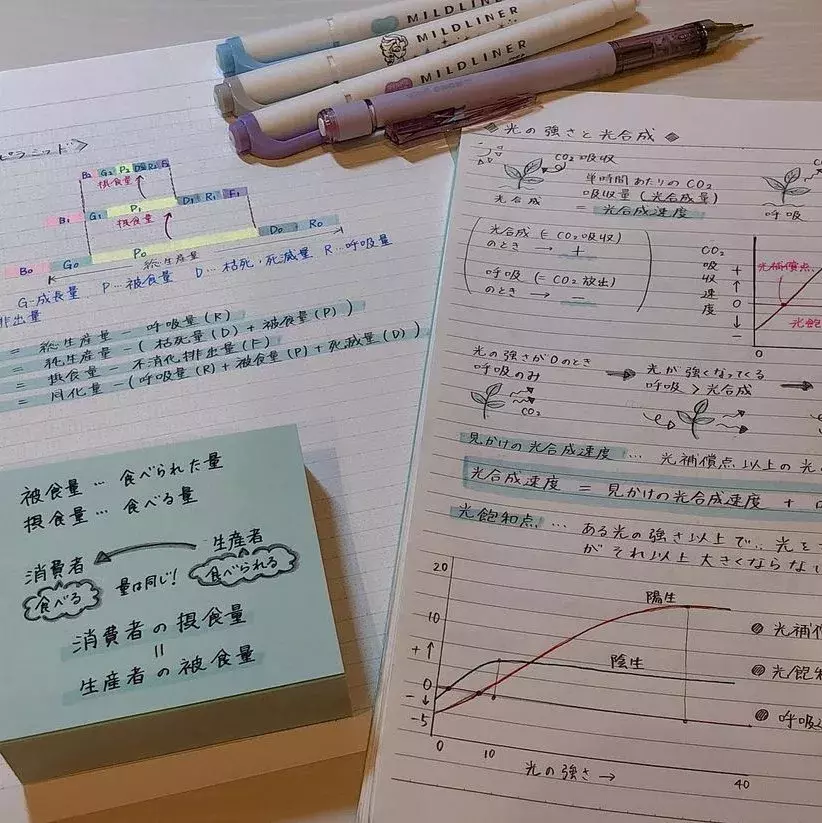 MILDLINER
MILDLINER
MILDLINER
ピラミッド>
B₂ G₂ P₂ D₂ R₂ F₂
摂食量
B₁ G₁ P₁ D₁ R₁ F₁
摂食量
B₀ G₀ P₀ D₀ R₀
総生産量
G…成長量 P…被食量 D…枯死・死滅量 R…呼吸量
排出量
= 総生産量 - 呼吸量(R)
= 純生産量 - (枯死量(D) + 被食量(P))
= 摂食量 - 不消化排出量(F)
= 同化量 - (呼吸量(R) + 被食量(P) + 死滅量(D))
被食量 … 食べられた量
摂食量 … 食べる量
消費者 ← 生産者
食べる 量は同じ! 食べられる
消費者の摂食量
=
生産者の被食量
◆光の強さと光合成◆
CO₂吸収
光合成
単時間あたりのCO₂
吸収量(光合成量)
= 光合成速度
呼吸
光合成(=CO₂吸収)
のとき → +
呼吸(=CO₂放出)
のとき → -
CO₂吸収速度
+
↑
0
↓
-
光補償点
光飽
0
光の強さが0のとき
呼吸のみ
CO₂
➡ 光が強くなってくる
呼吸 > 光合成 ➡
見かけの光合成速度 … 光補償点以上の光
光合成速度 = 見かけの光合成速度 +
光飽和点 … ある光の強さ以上で、光を
がそれ以上大きくならない
20
10
+↑
0
-↓
-5
陽生
陰生
0 10 40
光の強さ→
光補償
光飽和
呼吸